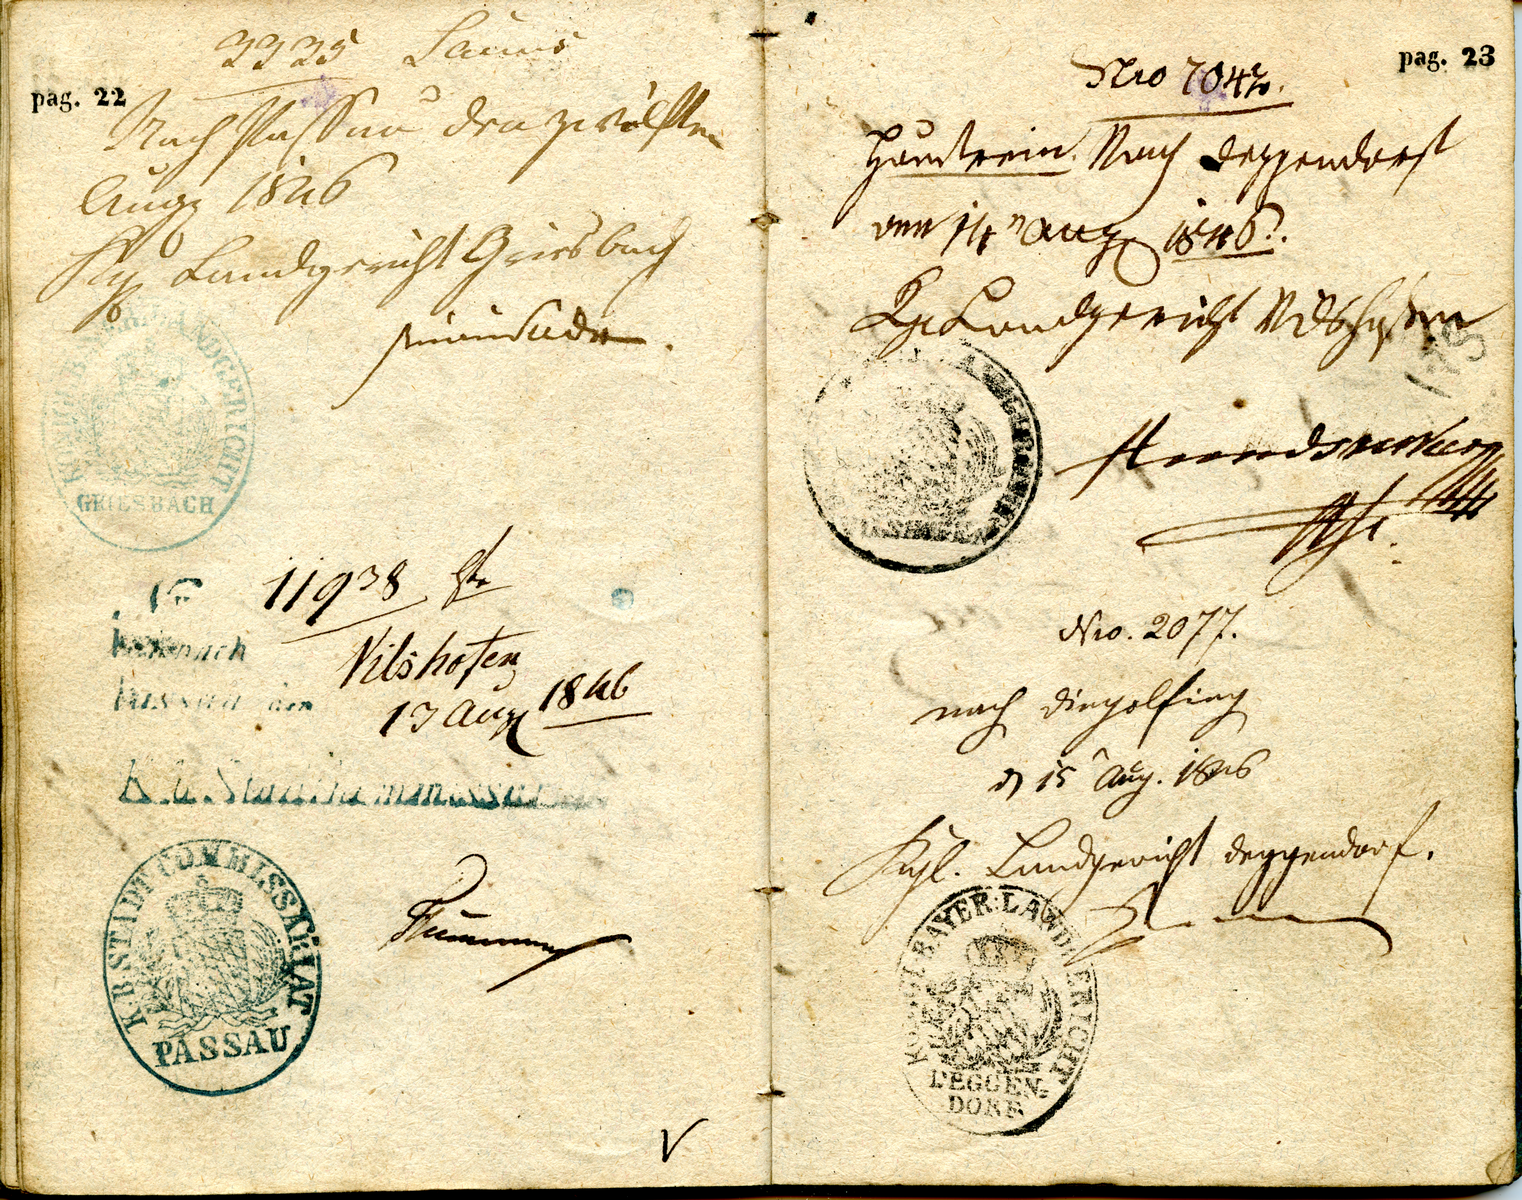 pag. 22
3325
Nach Passau den zwölften
Aug 1846
Kg Landgericht Griesbach
LANDGERICHT
GRIESBACH
11938
Vilshofen
13 Aug 1846
K. b. Stadtkommissariat
K. B. STADTCOMMISSARIAT
PASSAU
V
pag. 23
Nro 7042.
Nach Deggendorf
den 14n Aug 1846.
Kg Landgericht Vilshofen
VILSHOFEN
Nro. 2077.
nach Dingolfing
d 15 Aug. 1846
Kgl. Landgericht Deggendorf.
KÖNIGL. BAYER. LANDGERICHT
DEGGEN-
DORF